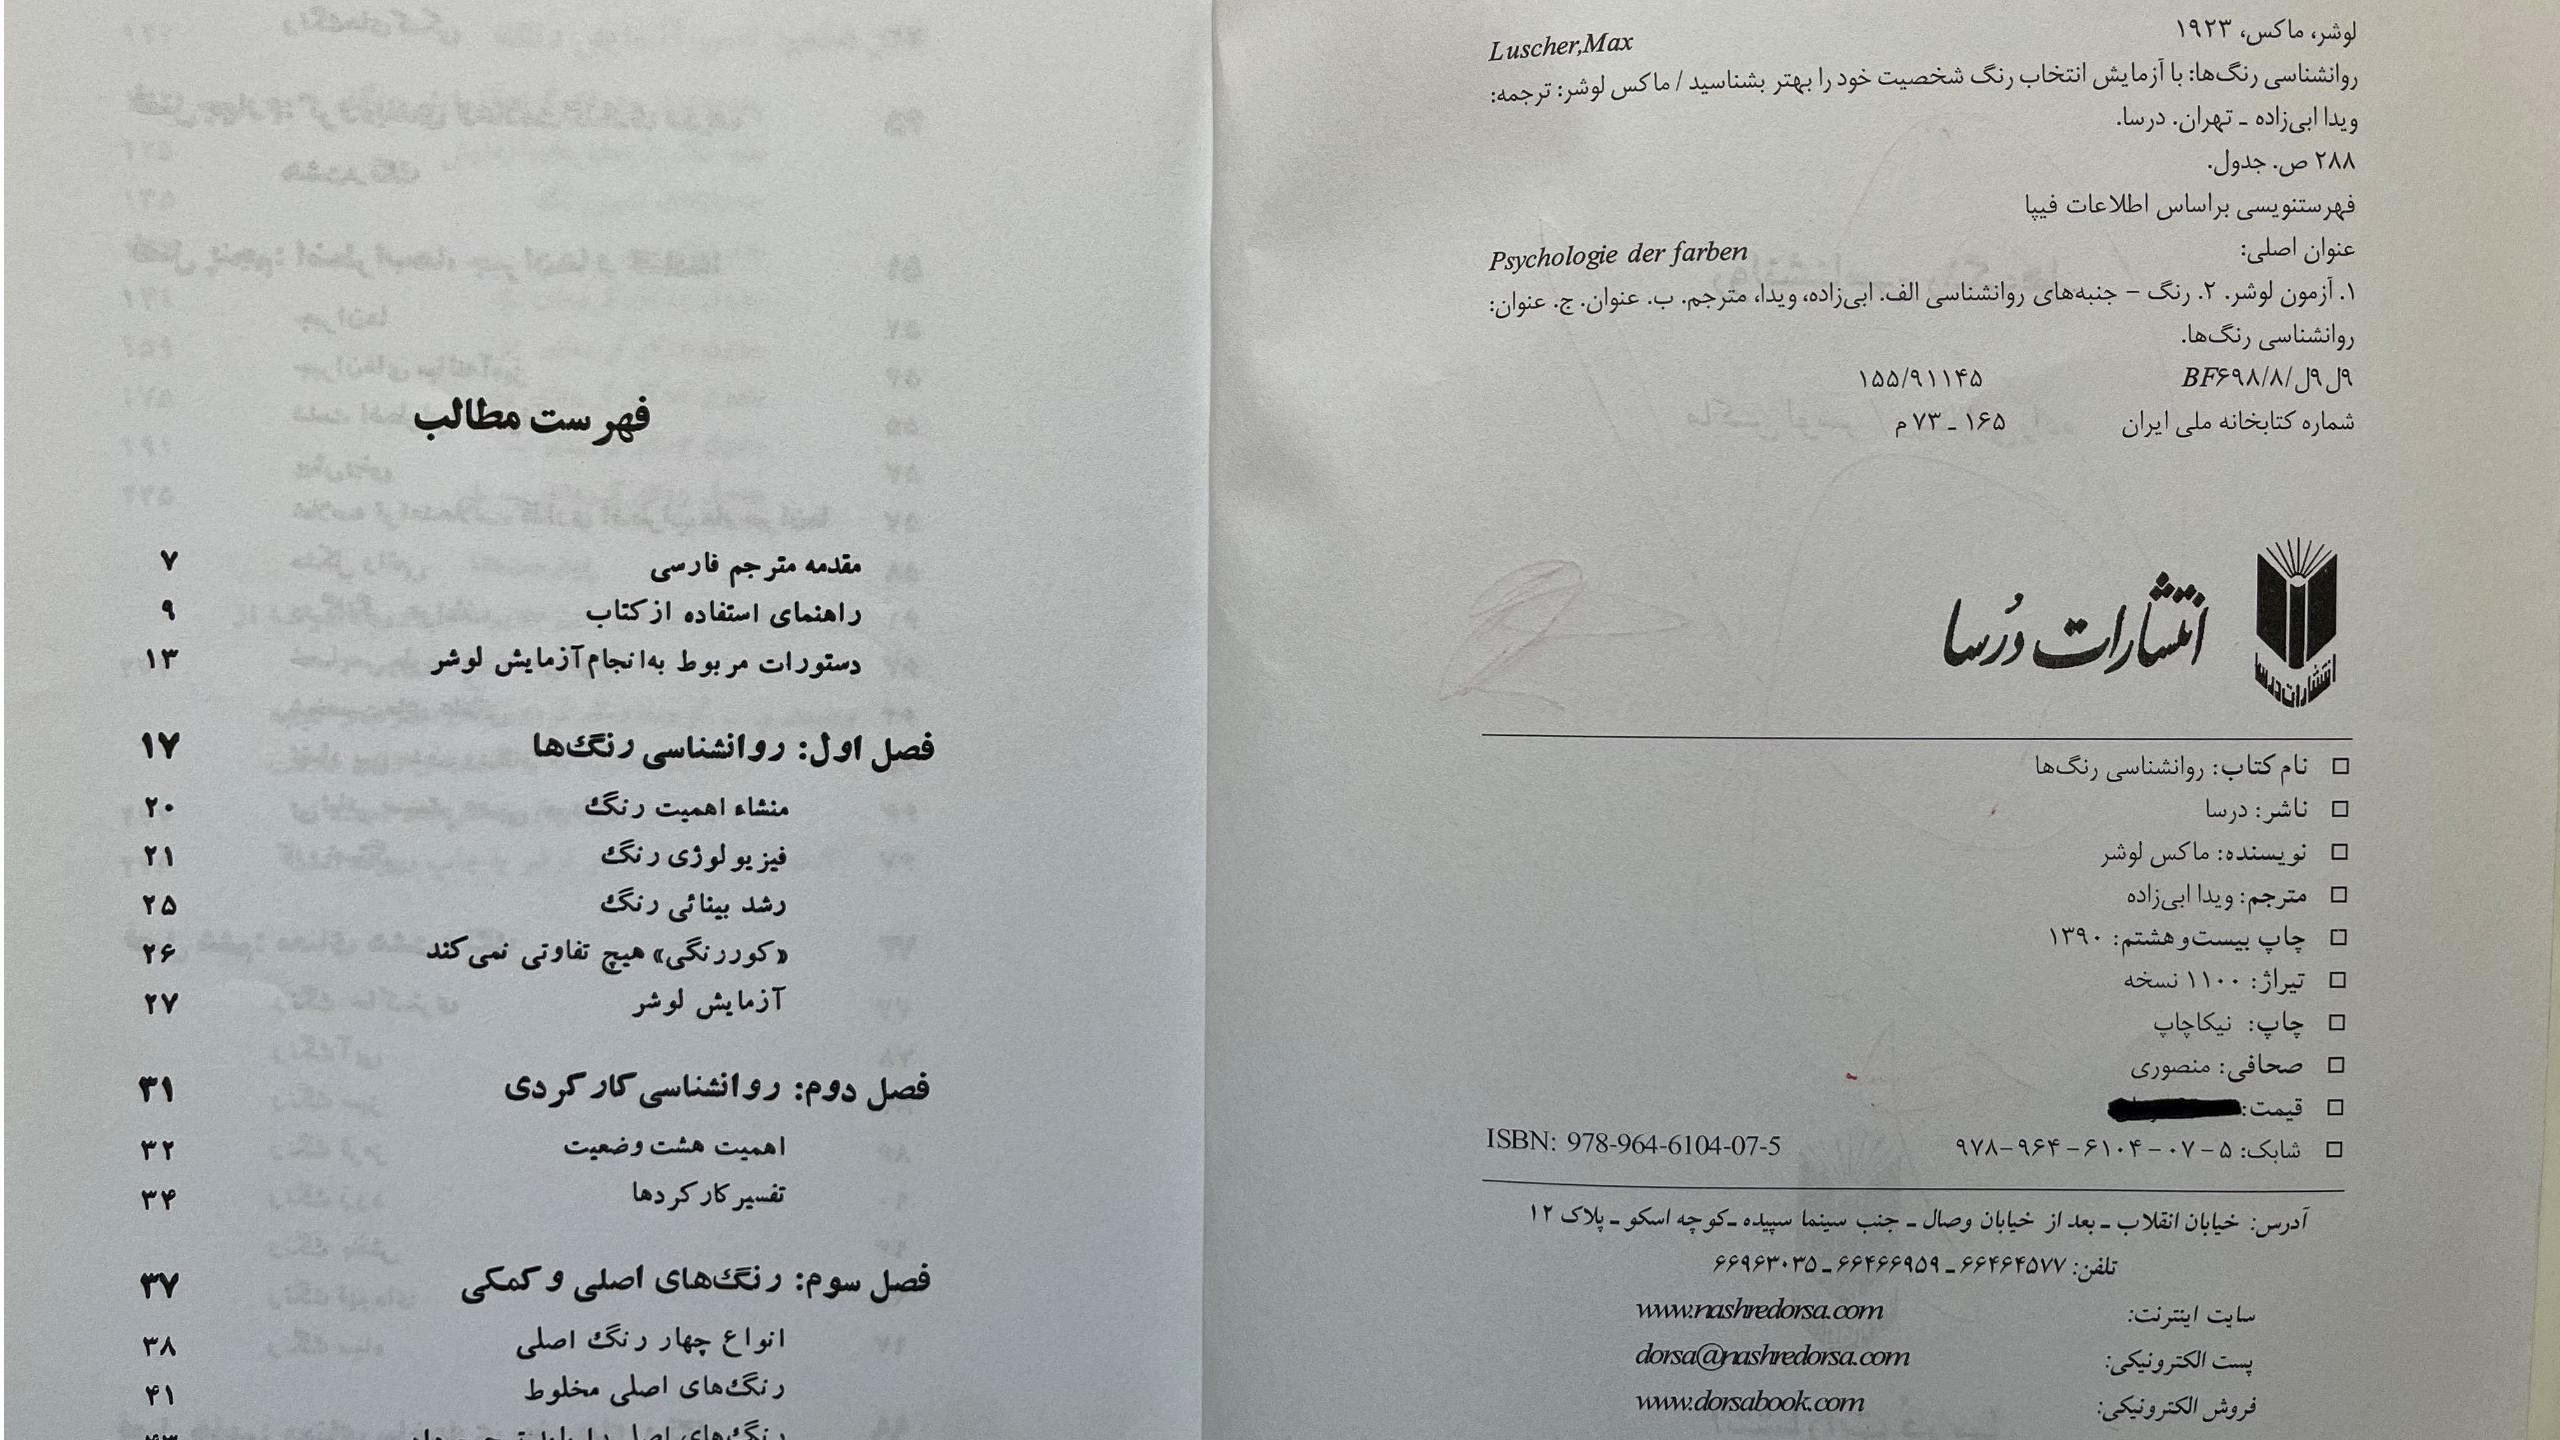 لوشر، ماکس، ۱۹۲۳
Luscher,Max
روانشناسی رنگ‌ها: با آزمایش انتخاب رنگ شخصیت خود را بهتر بشناسید / ماکس لوشر: ترجمه:
ویدا ابی‌زاده ـ تهران. درسا.
۲۸۸ ص. جدول.
فهرستنویسی براساس اطلاعات فیپا
عنوان اصلی: Psychologie der farben
۱. آزمون لوشر. ۲. رنگ – جنبه‌های روانشناسی الف. ابی‌زاده، ویدا، مترجم. ب. عنوان. ج. عنوان:
روانشناسی رنگ‌ها.
۹ل۹ل/۸/BF۶۹۸ ۱۵۵/۹۱۱۴۵
شماره کتابخانه ملی ایران ۱۶۵ ـ ۷۳ م
انتشارات دُرسا
انتشارات درسا
نام کتاب: روانشناسی رنگ‌ها
ناشر: درسا
نویسنده: ماکس لوشر
مترجم: ویدا ابی‌زاده
چاپ بیست‌و‌هشتم: ۱۳۹۰
تیراژ: ۱۱۰۰ نسخه
چاپ: نیکاچاپ
صحافی: منصوری
قیمت:
شابک: ۵ – ۰۷ – ۶۱۰۴ – ۹۶۴ –۹۷۸ ISBN: 978-964-6104-07-5
آدرس: خیابان انقلاب ـ بعد از خیابان وصال ـ جنب سینما سپیده ـ کوچه اسکو ـ پلاک ۱۲
تلفن: ۶۶۴۶۴۵۷۷ ـ ۶۶۴۶۶۹۵۹ ـ ۶۶۹۶۳۰۳۵
سایت اینترنت: www.nashredorsa.com
پست الکترونیکی: dorsa@nashredorsa.com
فروش الکترونیکی: www.dorsabook.com
فهرست مطالب
مقدمه مترجم فارسی ۷
راهنمای استفاده از کتاب ۹
دستورات مربوط به‌انجام آزمایش لوشر ۱۳
فصل اول: روانشناسی رنگ‌ها ۱۷
منشاء اهمیت رنگ ۲۰
فیزیولوژی رنگ ۲۱
رشد بینائی رنگ ۲۵
«کوررنگی» هیچ تفاوتی نمی‌کند ۲۶
آزمایش لوشر ۲۷
فصل دوم: روانشناسی کارکردی ۳۱
اهمیت هشت وضعیت ۳۲
تفسیر کارکردها ۳۴
فصل سوم: رنگ‌های اصلی و کمکی ۳۷
انواع چهار رنگ اصلی ۳۸
رنگ‌های اصلی مخلوط ۴۱
رنگ‌های اصلی ۴۳